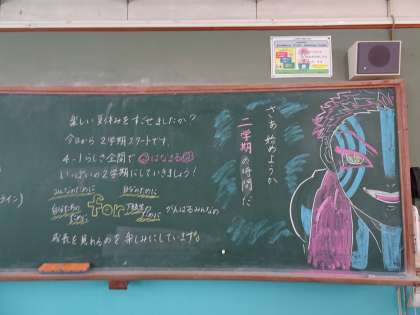 楽しい夏休みをすごせましたか?
今日から2学期スタートです
4-1らしさ全開で はなまる
いっぱいの2学期にしていきましょう!
みんなのために
自分のために
for
がんばるみんなの
成長を見れるのを楽しみにしています。
さあ始めようか
二学期の時間だ
ライン)